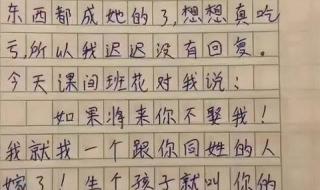 东西都成她的了,想想真吃
亏,所以我迟迟没有回复。
今天课间班花对我说:
如果将来你不娶我!
我就找一个跟你同姓的人
嫁了!生个孩子就叫你的